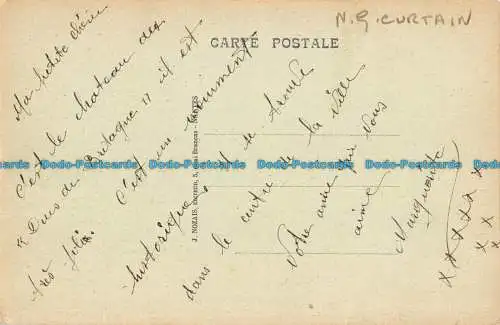 N.G. CURTAIN
CARTE POSTALE
Ma petite chérie
c'est le chateau des
"Ducs de Bretagne" il est
très joli. C'est un monument
historique, et se trouve
dans le centre de la ville
Votre amie qui vous
aime
Marguerite
x x x x x x
x x
x
J. NOZAIS, Editeur, 5, NANTES
Dodo-Postcards Dodo-Postcards Dodo-Postcards Dodo-Postcards